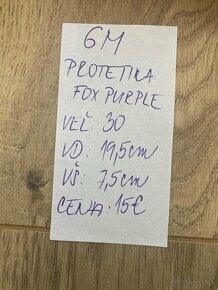 6M
PROTETIKA
FOX PURPLE
VEĽ: 30
VD: 19,5cm
VŠ: 7,5cm
CENA: 15€